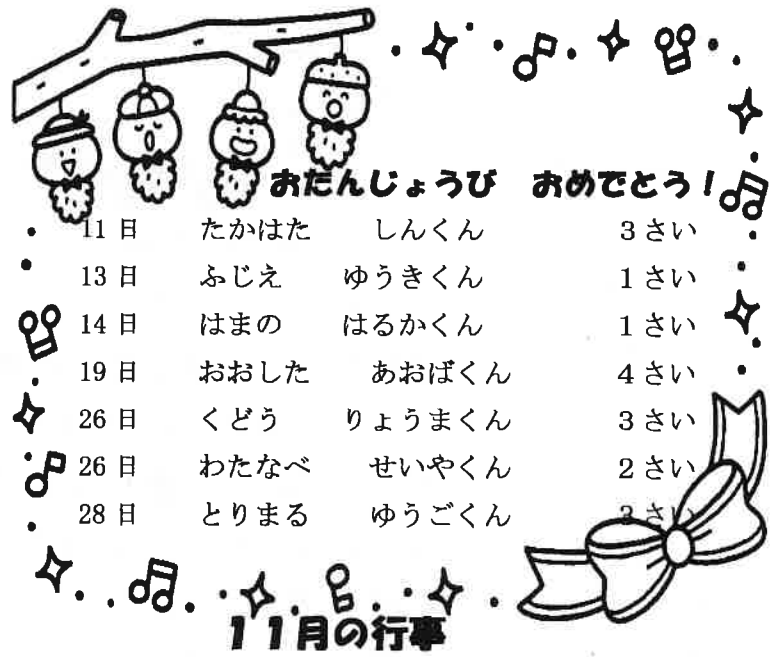 おたんじょうび　おめでとう！
11日　たかはた　しんくん　3さい
13日　ふじえ　ゆうきくん　1さい
14日　はまの　はるかくん　1さい
19日　おおした　あおばくん　4さい
26日　くどう　りょうまくん　3さい
26日　わたなべ　せいやくん　2さい
28日　とりまる　ゆうごくん　3さい
11月の行事